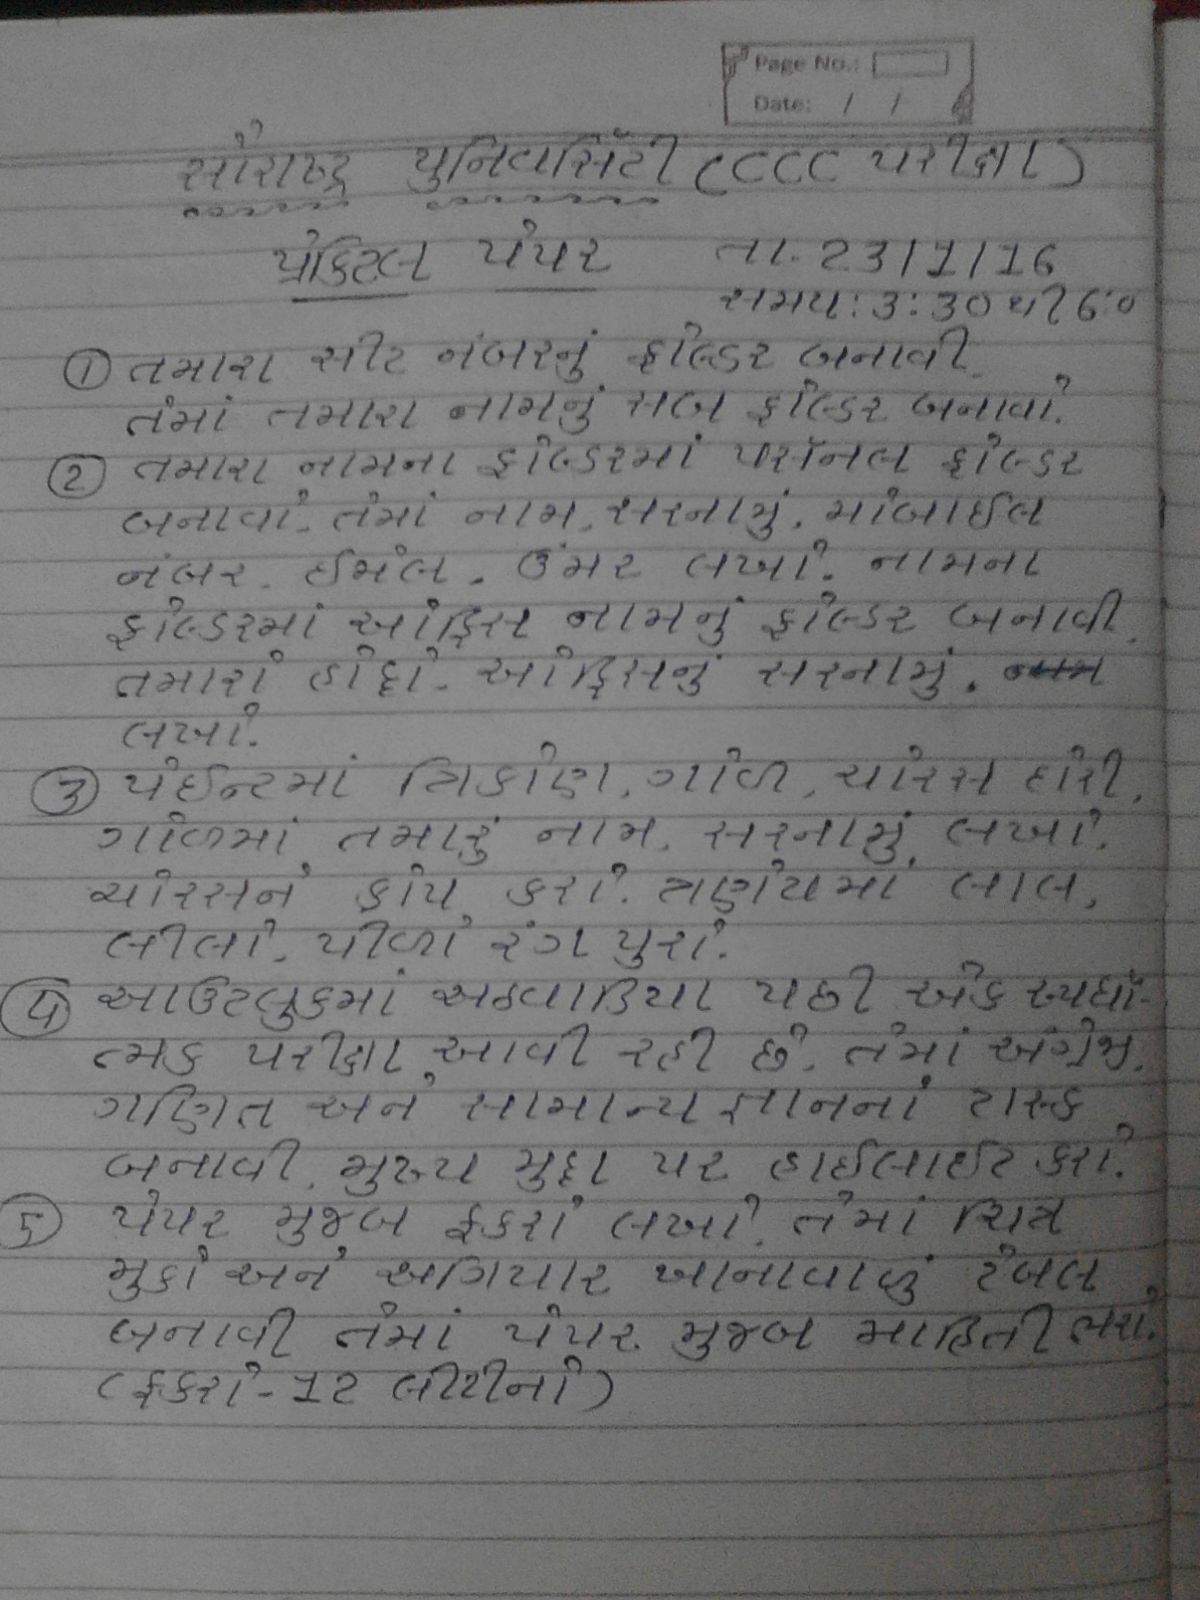 Page No.:
Date: / /
સૌરાષ્ટ્ર યુનિવર્સિટી (CCC પરીક્ષા)
પ્રેકિટલ પેપર તા. 23/1/16
સમય: 3:30 થી 6:0
① તમારા સીટ નંબરનું ફોલ્ડર બનાવી.
તેમાં તમારા નામનું સબ ફોલ્ડર બનાવો.
② તમારા નામના ફોલ્ડરમાં પર્સનલ ફોલ્ડર
બનાવો. તેમાં નામ, સરનામું, મોબાઈલ
નંબર. ઈમેલ. ઉંમર લખો. નામના
ફોલ્ડરમાં ઓફિસ નામનું ફોલ્ડર બનાવી.
તમારો હોદ્દો. ઓફિસનું સરનામું.
લખો.
③ પેઈન્ટમાં ત્રિકોણ, ગોળ, ચોરસ દોરી,
ગોળમાં તમારું નામ, સરનામું લખો.
ચોરસને ક્રોપ કરો. ત્રણેયમાં લાલ,
લીલો, પીળો રંગ પુરો.
④ આઉટલુકમાં અઠવાડિયા પછી એક સ્પર્ધા-
ત્મક પરીક્ષા આવી રહી છે. તેમાં અંગ્રેજી,
ગણિત અને સામાન્ય જ્ઞાનનાં ટાસ્ક
બનાવી, મુખ્ય મુદ્દા પર હાઈલાઈટ કરો.
⑤ પેપર મુજબ ફકરો લખો. તેમાં ચિત્ર
મુકો અને અગિયાર ખાનાવાળું ટેબલ
બનાવી તેમાં પેપર મુજબ માહિતી ભરો.
(ફકરો - 12 લીટીનો)